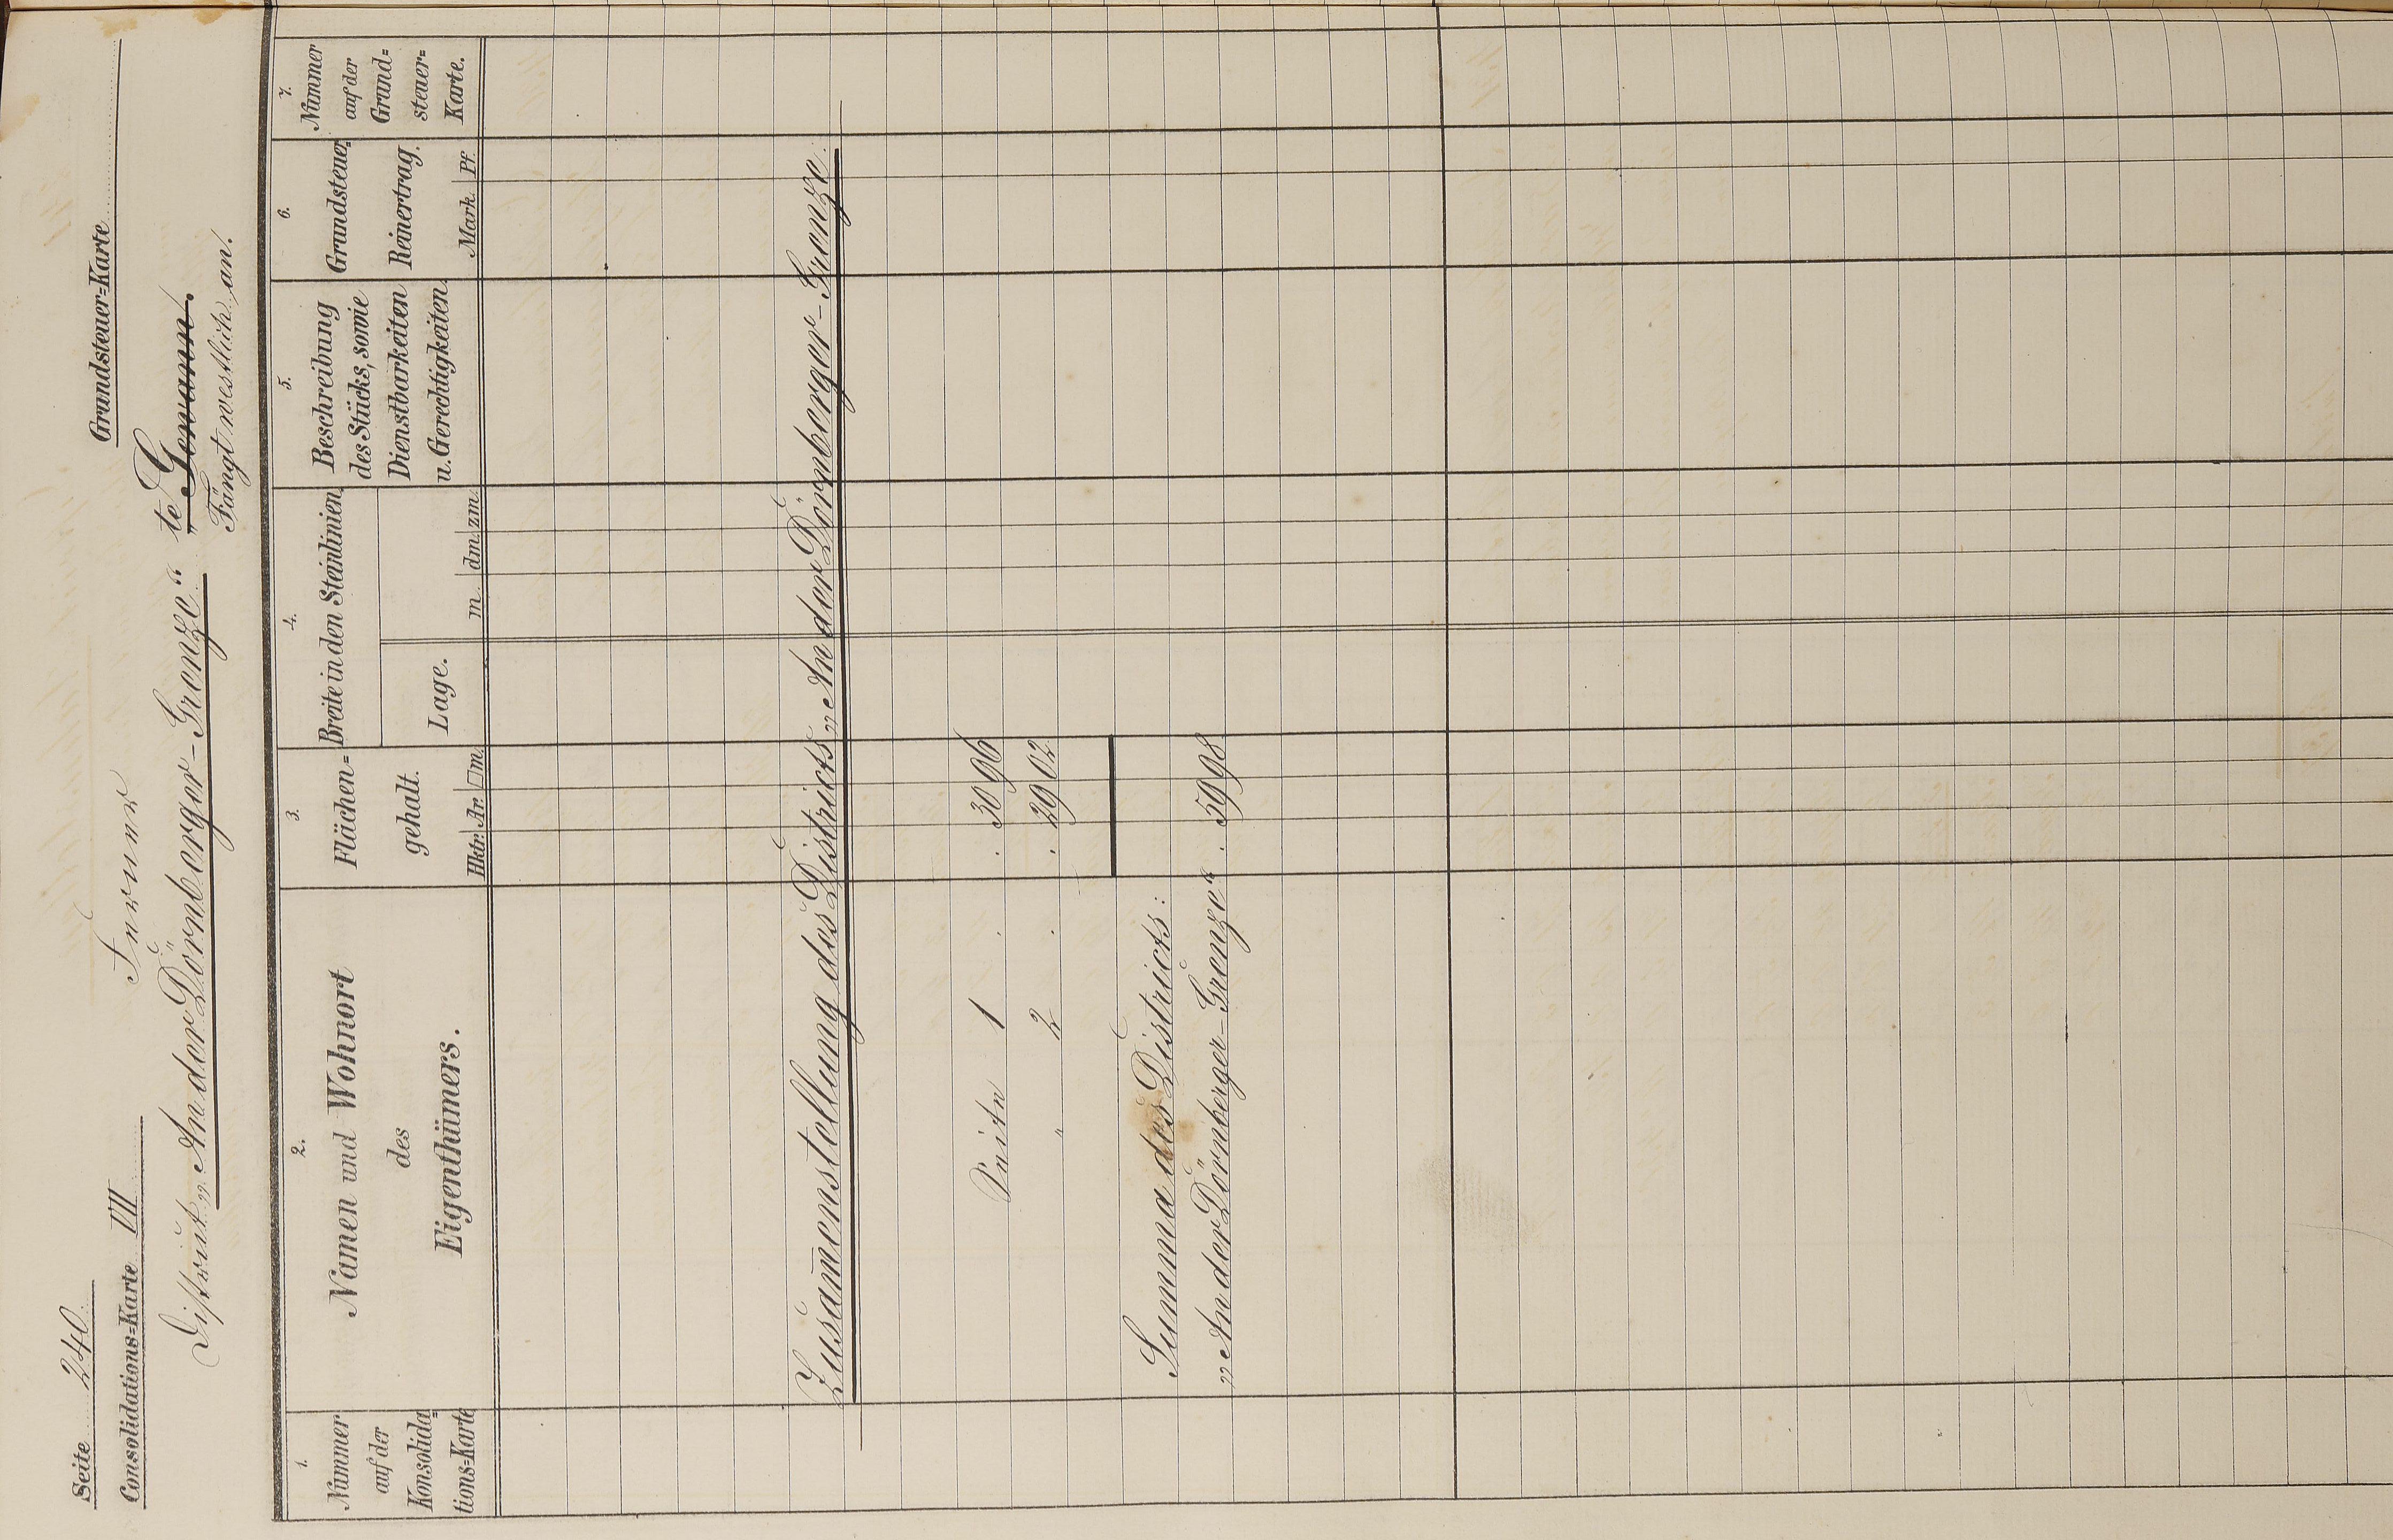 Seite 240.
Grundsteuer=Karte
Consolidations=Karte VII
Ferner
District „An der Dörnberger-Grenze“ „te Gewann.
Fängt westlich an.
1.
Nummer
auf der
Konsolida
tions=Karte
2.
Namen und Wohnort
des
Eigenthümers.
3.
Flächen=
gehalt.
Hktr. Ar. □m.
4.
Breite in den Steinlinien
Lage.
m. dm. zm.
5.
Beschreibung
des Stücks, sowie
Dienstbarkeiten
u. Gerechtigkeiten.
6.
Grundsteuer
Reinertrag.
Mark. Pf.
7.
Nummer
auf der
Grund=
steuer=
Karte.
Zusam̄enstellung des Districts „An der Dörnberger-Grenze.
Seite 1 . . 30 96
„ 2 . . 29 02
Summa des Districts:
„An der Dörnberger-Grenze“ . 59 98